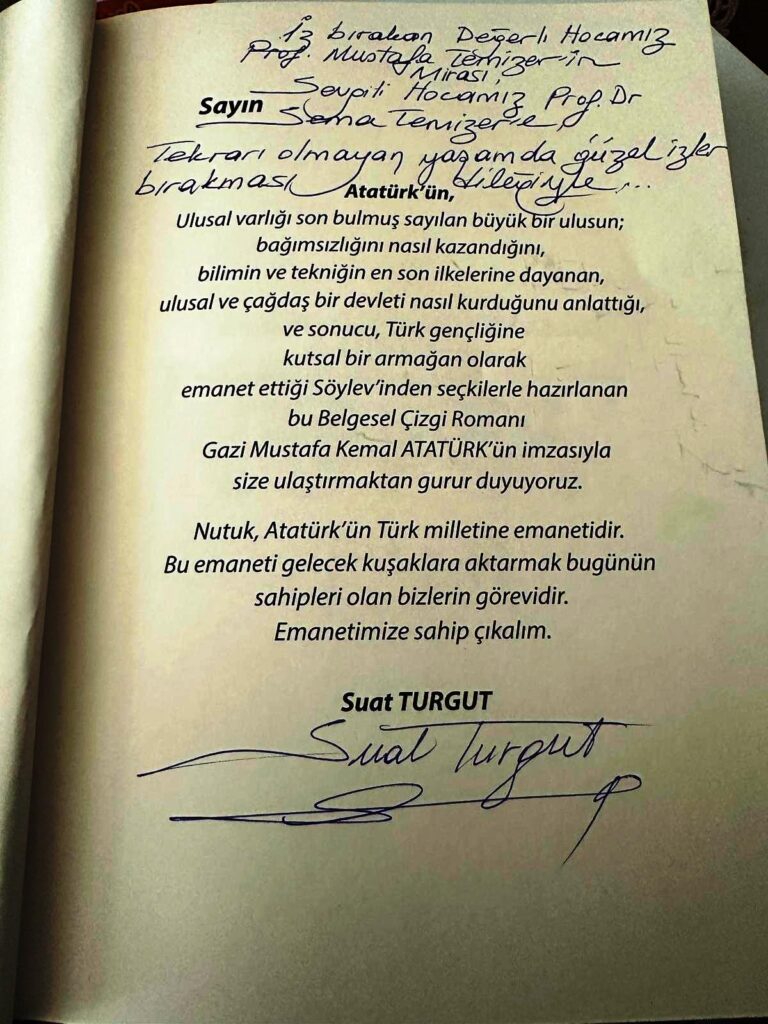 İz bırakan Değerli Hocamız
Prof. Mustafa Temizer'in
Mirası
Sevgili Hocamız Prof. Dr
Sayın Sema Temizer'e,
Tekrarı olmayan yaşamda güzel izler
bırakması dileğiyle...
Atatürk'ün,
Ulusal varlığı son bulmuş sayılan büyük bir ulusun;
bağımsızlığını nasıl kazandığını,
bilimin ve tekniğin en son ilkelerine dayanan,
ulusal ve çağdaş bir devleti nasıl kurduğunu anlattığı,
ve sonucu, Türk gençliğine
kutsal bir armağan olarak
emanet ettiği Söylev'inden seçkilerle hazırlanan
bu Belgesel Çizgi Romanı
Gazi Mustafa Kemal ATATÜRK'ün imzasıyla
size ulaştırmaktan gurur duyuyoruz.
Nutuk, Atatürk'ün Türk milletine emanetidir.
Bu emaneti gelecek kuşaklara aktarmak bugünün
sahipleri olan bizlerin görevidir.
Emanetimize sahip çıkalım.
Suat TURGUT
Suat Turgut